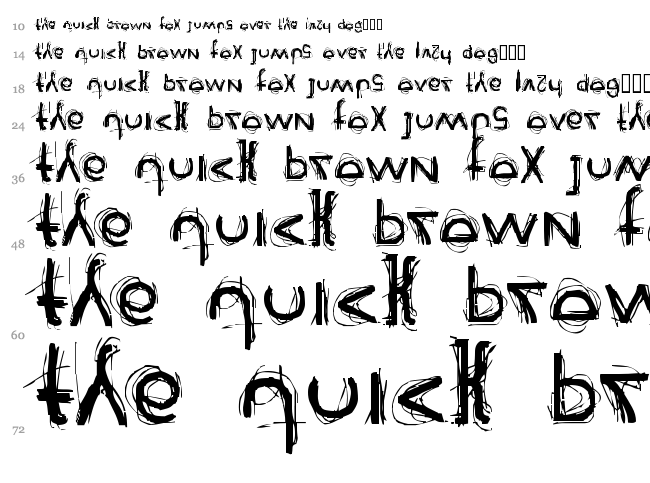 10 the quick brown fox jumps over the lazy dog□□□
14 the quick brown fox jumps over the lazy dog□□□
18 the quick brown fox jumps over the lazy dog□□□
24 the quick brown fox jumps over the
36 the quick brown fox jum
48 the quick brown f
60 the quick brow
72 the quick br